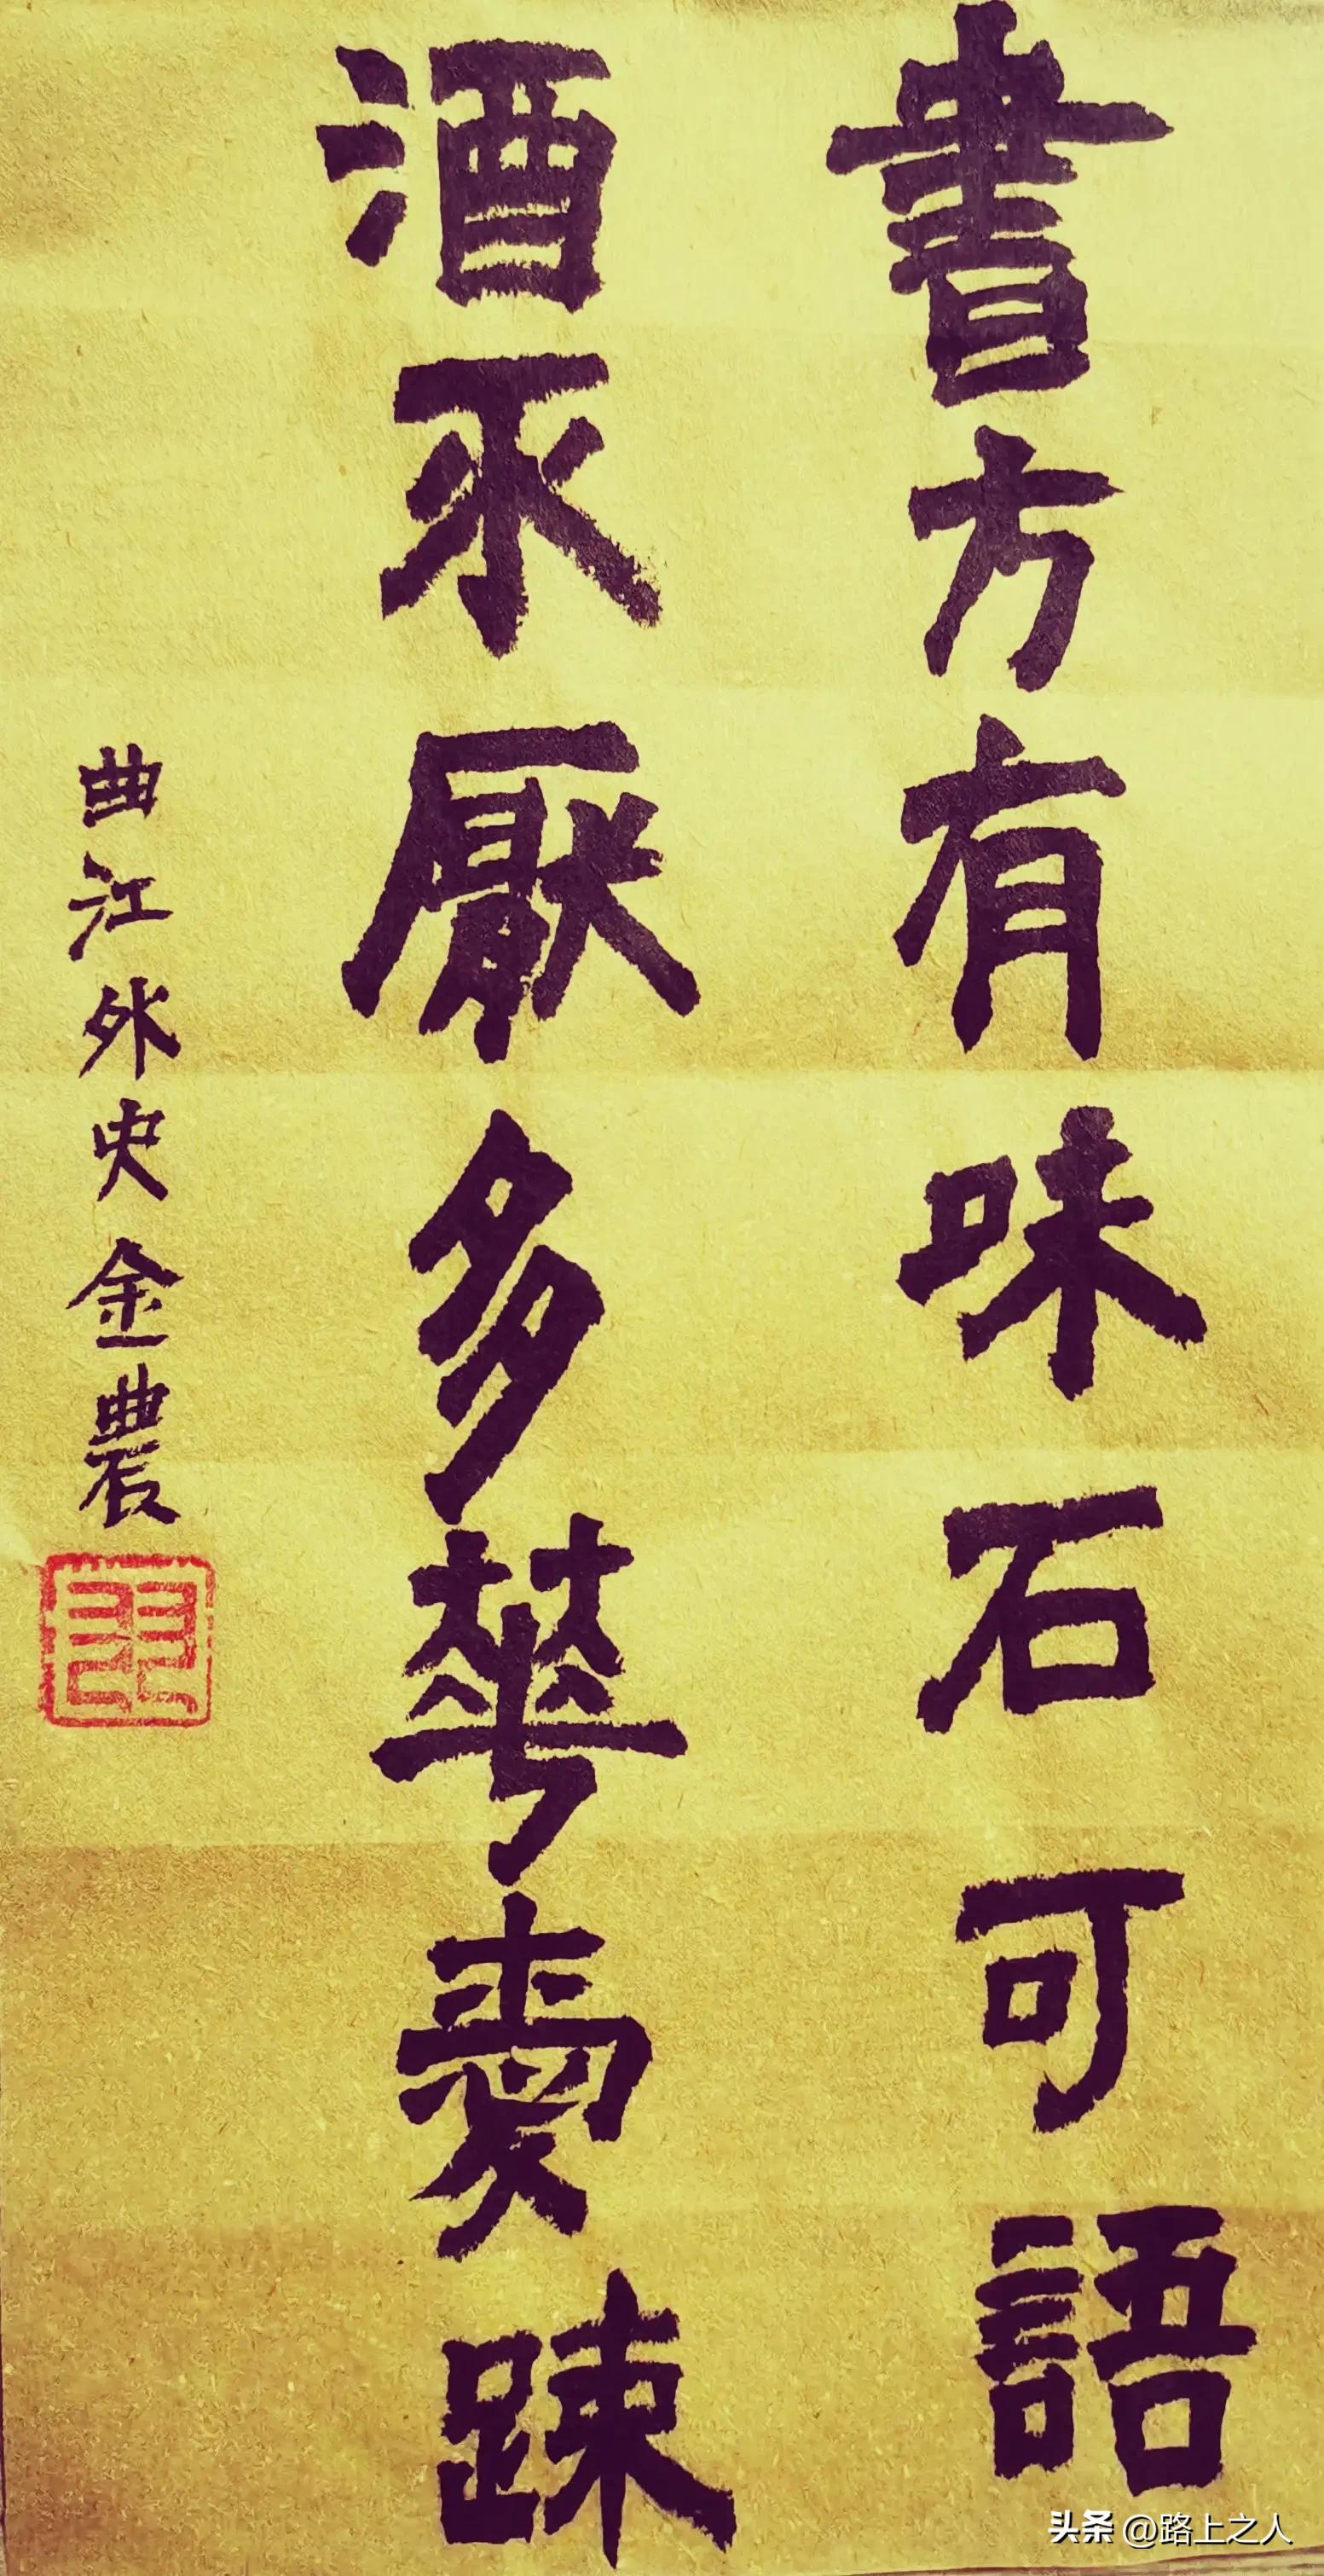 書方有味石可語
酒不厭多華愛踈
曲江外史金農
头条 @路上之人